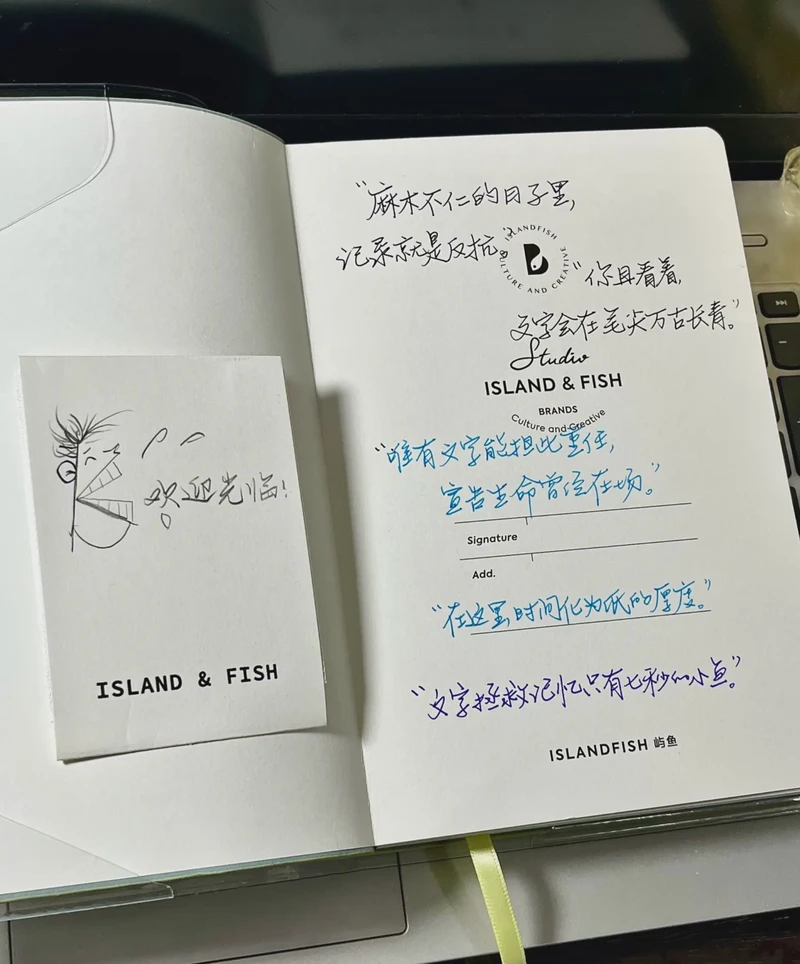 欢迎光临!
ISLAND & FISH
“麻木不仁的日子里,
记录就是反抗。”
ISLANDFISH
CULTURE AND CREATIVE
“你且看着,
文字会在笔尖万古长青。”
Studio
ISLAND & FISH
BRANDS
Culture and Creative
“唯有文字能担此重任,
宣告生命曾经在场。”
Signature
Add.
“在这里,时间化为纸的厚度。”
“文字拯救记忆只有七秒的小鱼。”
ISLANDFISH 屿鱼